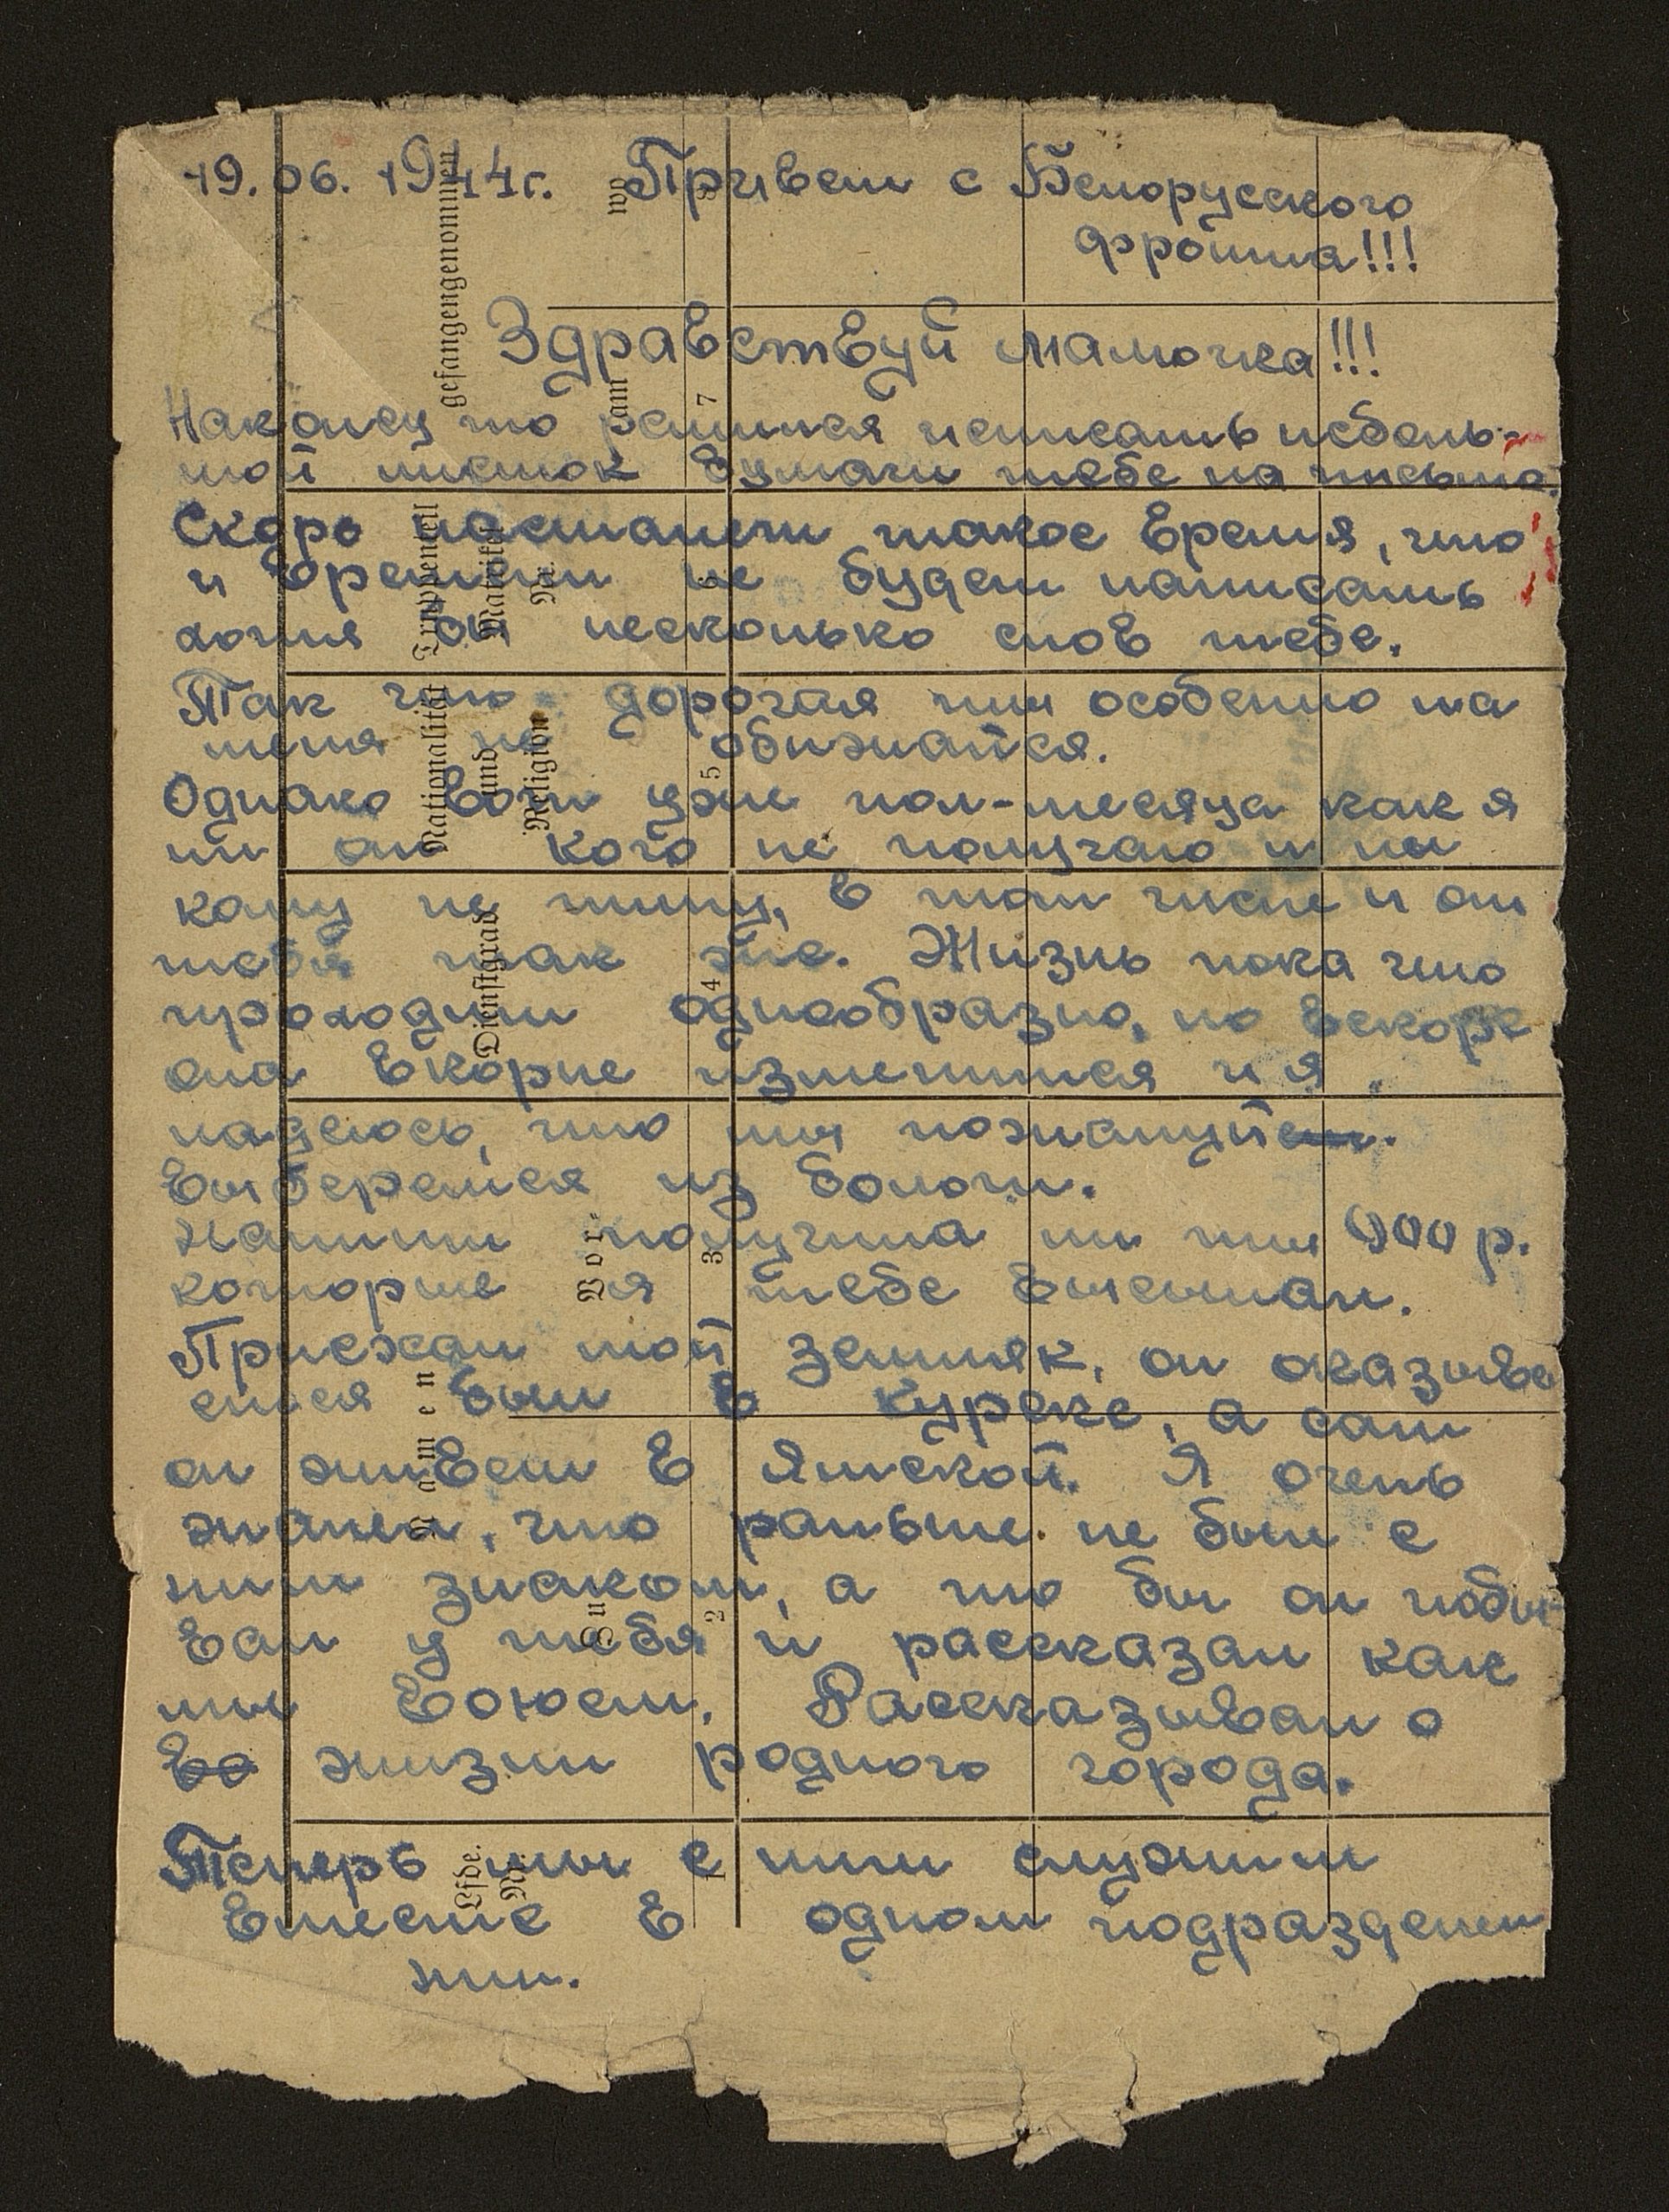 19.06.1944г. Привет с Белорусского
фронта!!!
Здравствуй мамочка!!!
Наконец то решился исписать неболь-
шой листок бумаги тебе на письмо.
Скоро настанет такое время, что
и времени не будет написать
хотя бы несколько слов тебе.
Так что дорогая ты особенно на
меня не обижайся.
Однако вот уже пол-месяца как я
ни от кого не получаю и ни
кому не пишу, в том числе и от
тебя так же. Жизнь пока что
проходит однообразно, но вскоре
она в корне изменится и я
надеюсь, что мы пожалуй
выберемся из болот.
Мамочка получила ли ты 900 р.
которые я тебе высылал.
Приехал мой земляк, он оказыва
ется был в Курске, а сам
он живет в Ямской. Я очень
жалел, что раньше не был с
ним знаком, а то бы он побы-
вал у тебя и рассказал как
мы воюем. Рассказывал о
жизни родного города.
Теперь мы с ним служим
вместе в одном подразделе
нии.
gefangengenommen
wo
am
8
7
Truppenteil
Matrikel
Nr.
6
Nationalität
und
Religion
5
Dienstgrad
4
Vor-
3
Namen
Zu
2
Lfde.
Nr.
1